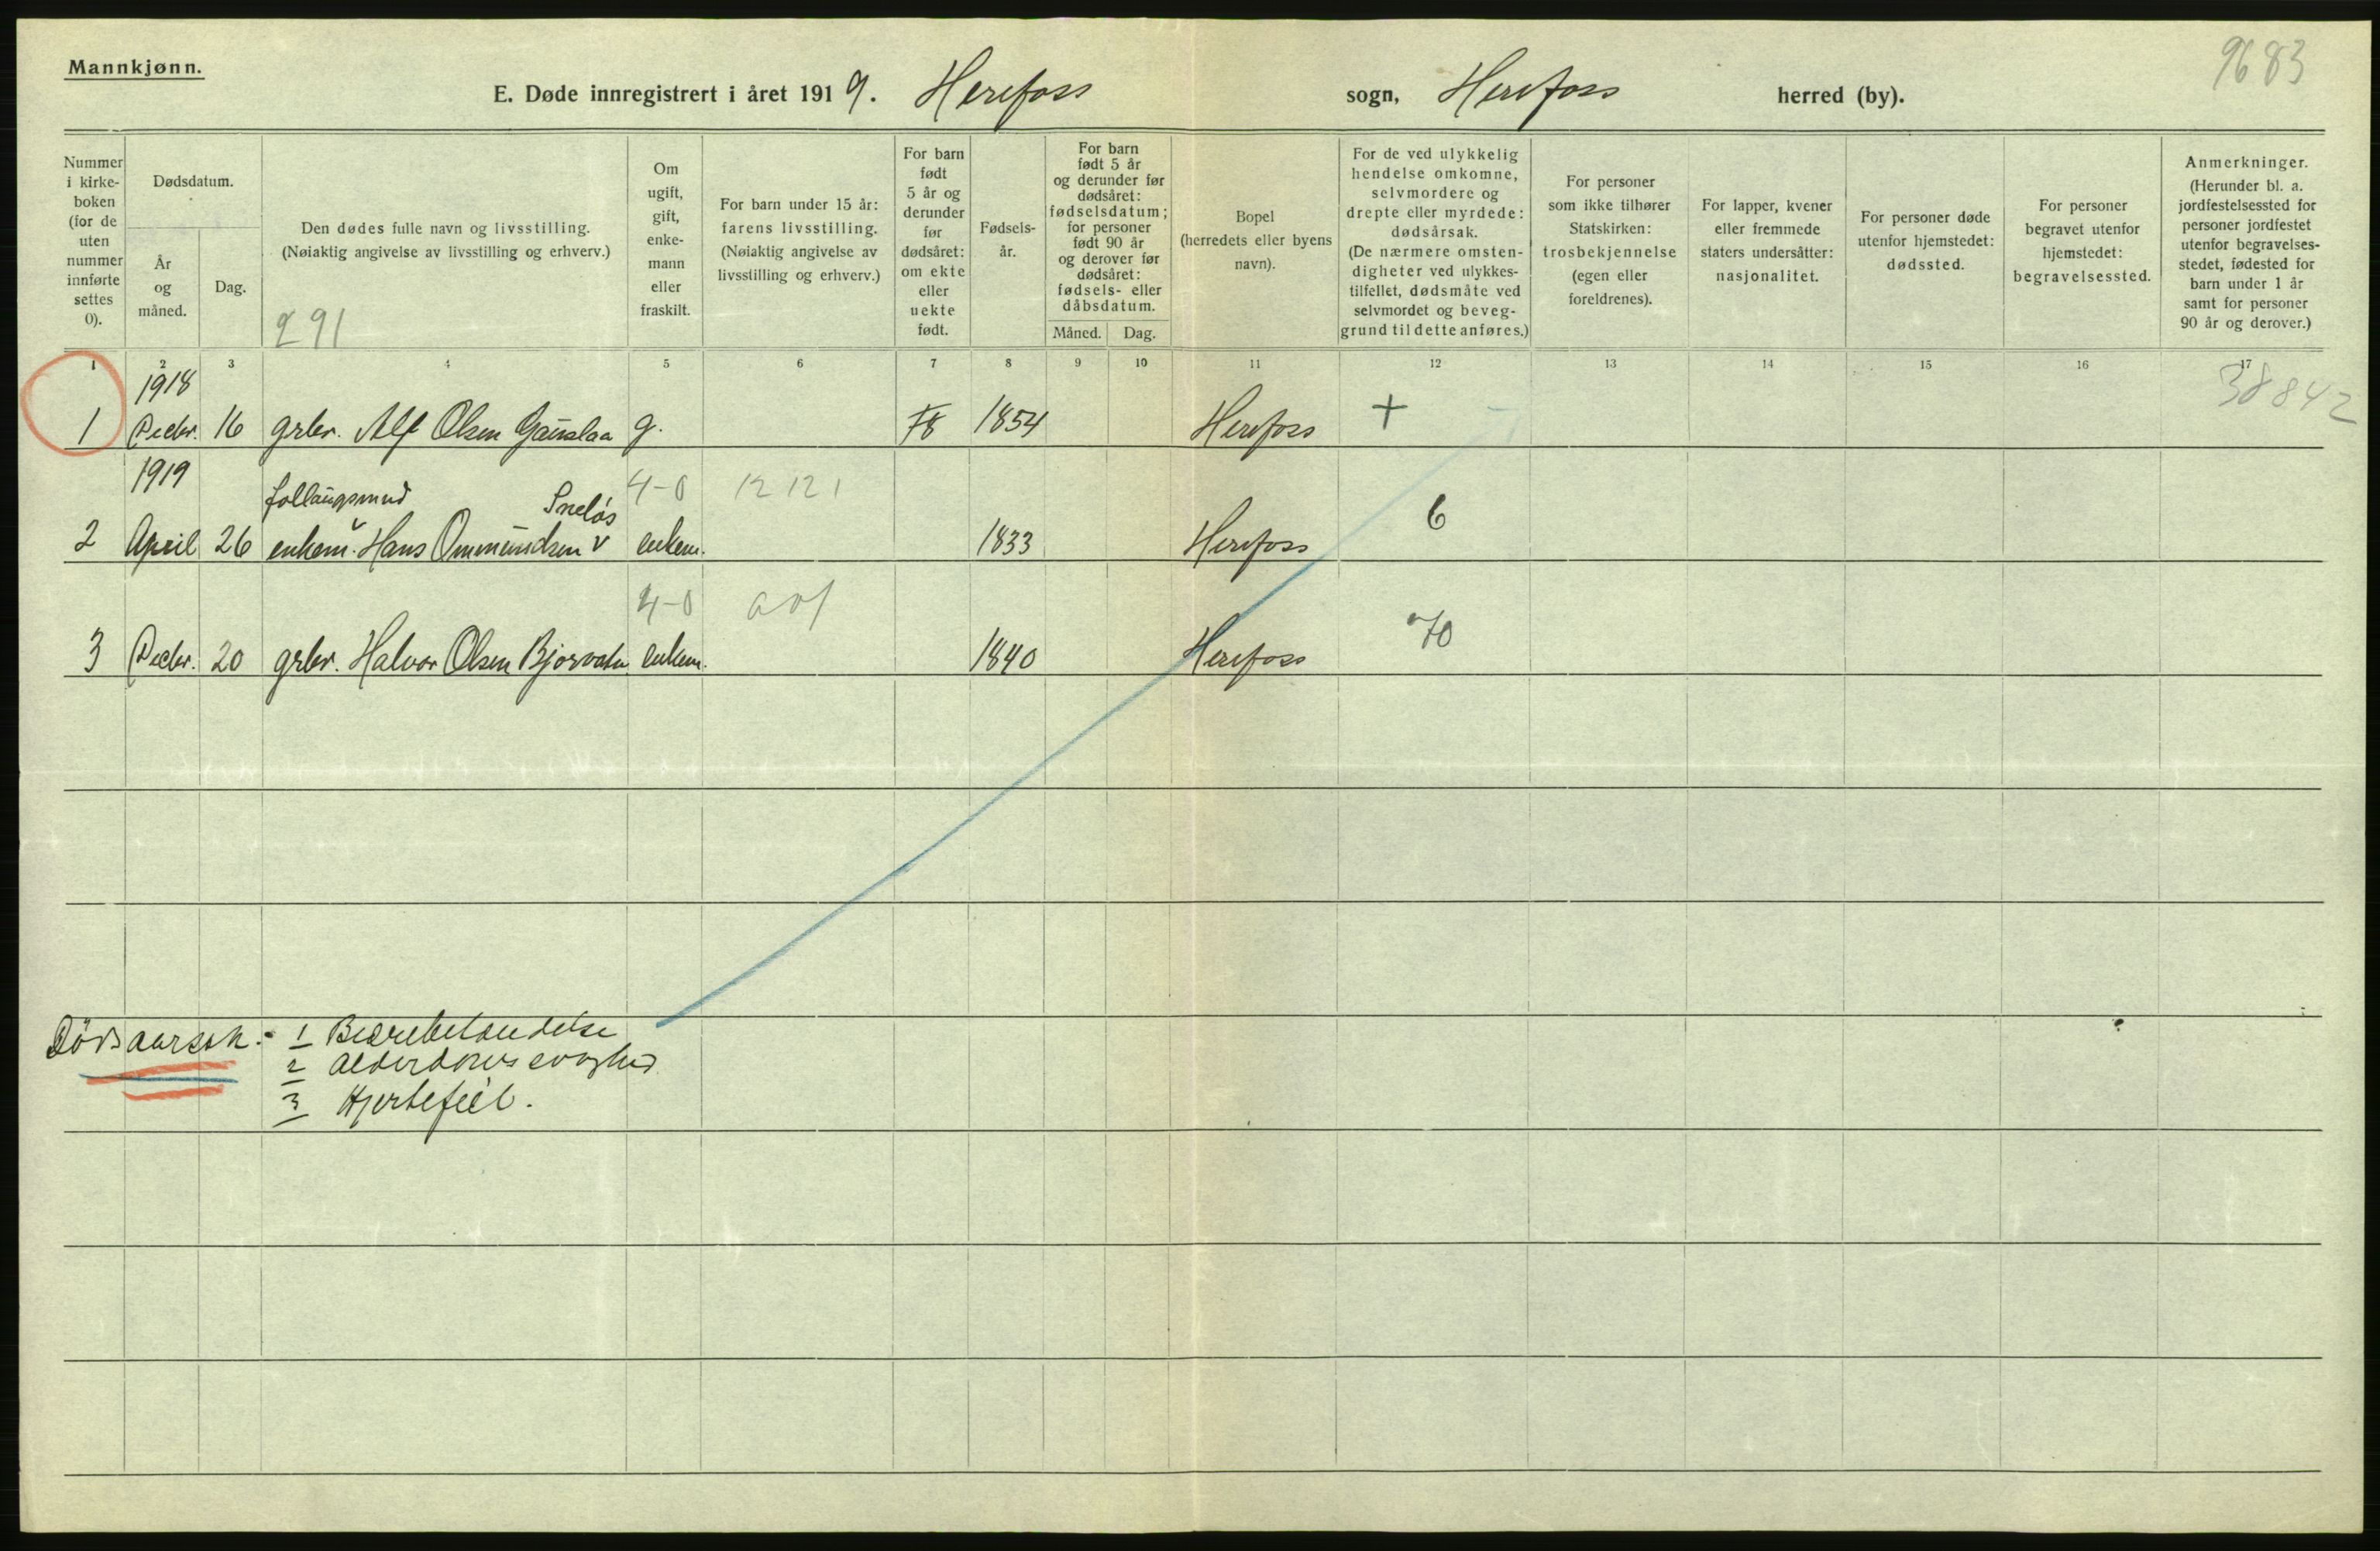 Mannkjønn.
9683
E. Døde innregistrert i året 1919. Herefoss sogn, Herefoss herred (by).
Nummer i kirkeboken (for de uten nummer innførte settes 0).
Dødsdatum.
År og måned.
Dag.
Den dødes fulle navn og livsstilling.
(Nøiaktig angivelse av livsstilling og erhverv.)
291
Om ugift, gift, enkemann eller fraskilt.
For barn under 15 år: farens livsstilling. (Nøiaktig angivelse av livsstilling og erhverv.)
For barn født 5 år og derunder før dødsåret: om ekte eller uekte født.
Fødselsår.
For barn født 5 år og derunder før dødsåret: fødselsdatum; for personer født 90 år og derover før dødsåret: fødsels- eller dåbsdatum.
Måned. Dag.
Bopel (herredets eller byens navn).
For de ved ulykkelig hendelse omkomne, selvmordere og drepte eller myrdede: dødsårsak. (De nærmere omstendigheter ved ulykkestilfellet, dødsmåte ved selvmordet og beveggrund til dette anføres.)
For personer som ikke tilhører Statskirken: trosbekjennelse (egen eller foreldrenes).
For lapper, kvener eller fremmede staters undersåtter: nasjonalitet.
For personer døde utenfor hjemstedet: dødssted.
For personer begravet utenfor hjemstedet: begravelsessted.
Anmerkninger. (Herunder bl. a. jordfestelsessted for personer jordfestet utenfor begravelsesstedet, fødested for barn under 1 år samt for personer 90 år og derover.)
1 2 3 4 5 6 7 8 9 10 11 12 13 14 15 16 17
1918 38842
1 Decbr. 16 grbr. Alf Olsen Gauslaa g. 1854 Herefoss +
1919 follaugsmnd Snelös 4-0 12121
2 April 26 enkem. Hans Ommundsen v enkem. 1833 Herefoss 6
4-0
3 Decbr. 20 grbr. Halvor Olsen Bjorvatn enkem. 1840 Herefoss 70
Dödsaarsak:- 1 Bedrebetendelse
2 Alderdomssvaghed
3 Hjertefeil.